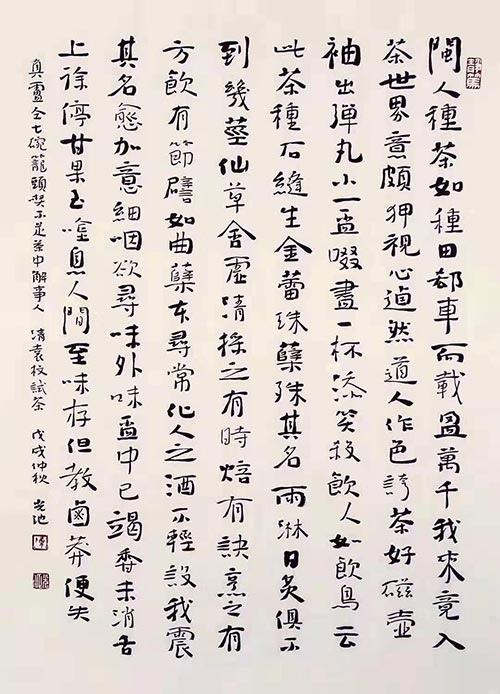 閩人種茶如種田郄車而載盈萬千我來竟入
茶世界意頗狎視心逌然道人作色誇茶好磁壺
袖出彈丸小一盃啜盡一杯添笑殺飲人如飲鳥云
此茶種石縫生金蕾珠蘖殊其名雨淋日炙俱不
到幾莖仙草含虛清採之有時焙有訣烹之有
方飲有節譬如曲蘖本尋常化人之酒不輕設我震
其名愈加意細咽欲尋味外味盃中已竭香未消舌
上徐停甘果至嘆息人間至味存但教鹵莽便失
真盧仝七碗籠頭喫不是茶中解事人 清袁枚試茶 戊戌仲秋 光池